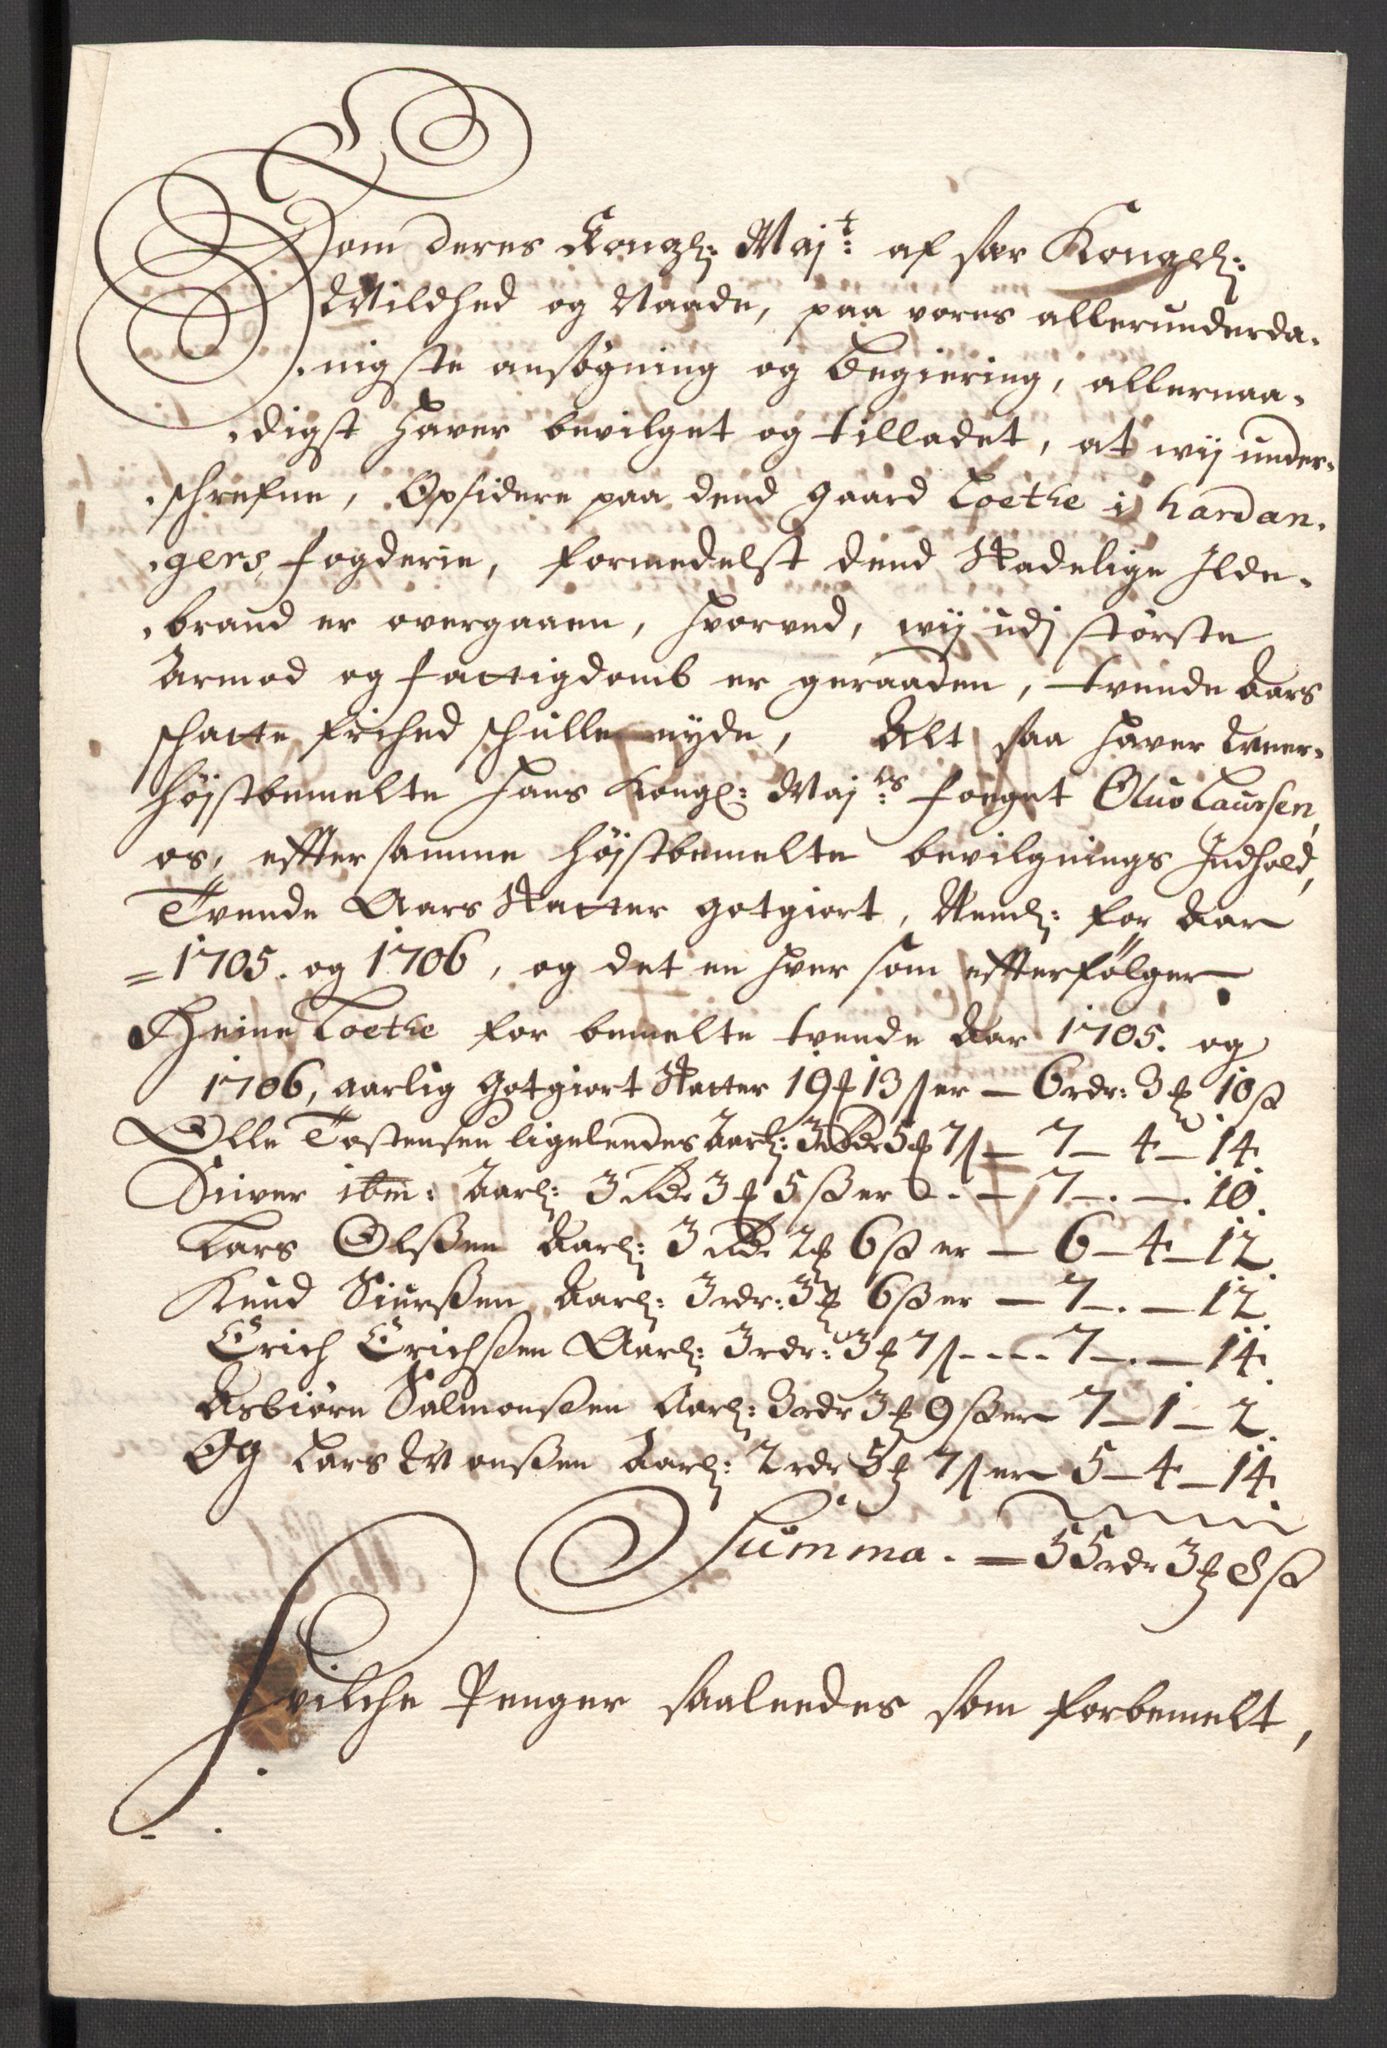 Som deres Kongl: Maj:t af sær Kongel:
Mildhed og Naade, paa vores allerunderda-
nigste ansøgning og begiering, allernaa-
digst hafver bevilget og tilladet, at wij under-
schrefne, Opsidere paa dend gaard Loethe i hardan-
gers fogderie, formedelst dend skadelige Ilde-
brand er overgaaen, hvorved, wij udj største
Armod og fattigdomb er geraaden, tvende Aars
schatte frihed schulle nyde, Alt saa hafver
højstbemelte Hans Kongl: Maj:ts foeget Oluo Laursen,
os, effter samme højstbemelte bevilgnings Indhold,
Tvende Aars Skatter gotgiort, Neml: for Aar
1705. og 1706, og det en hver som effterfølger
Heine Loethe for bemelte tvende Aar 1705. og
1706, aarlig gotgiort Skatter 19 13 s er — 6 rdr: 3 10 ß
Olle Tostensen ligeleedes Aarl: 3 Rdr 5 7 s — 7 — 4 — 14.
Siver ibm: Aarl: 3 Rdr 3 5 ß er — 7 — . — 10.
Lars Olßen Aarl: 3 Rdr 2 6 ß er — 6 — 4 — 12.
Knud Siurßen Aarl: 3 rdr: 3 6 ß er — 7 — . — 12.
Erich Erichßen Aarl: 3 rdr: 3 7 s — 7 — . — 14.
Asbiørn Salmonßen Aarl: 3 rdr 3 9 ß er 7 — 1 — 2.
Og Lars Monßen Aarl: 2 rdr 5 7 s er 5 — 4 — 14.
Summa. — 55 rdr 3 8 ß
Hvilche Penger saaleedes som forbemelt,